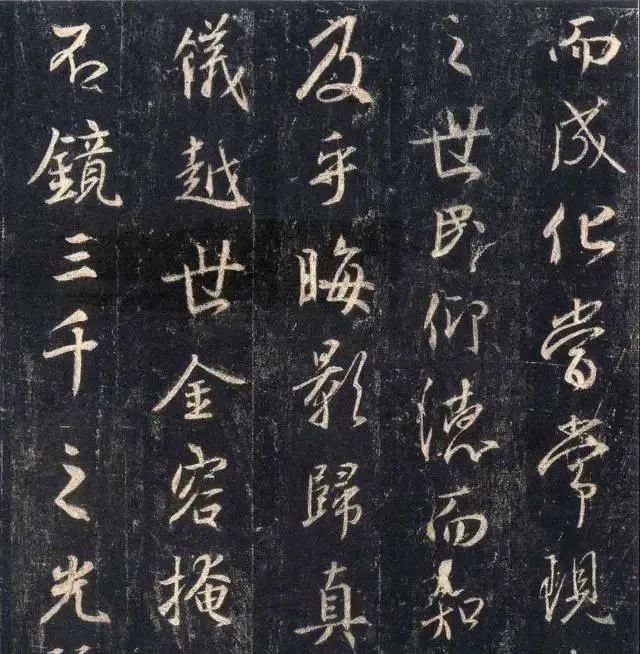 而成化當常現
之世民仰德而知
及乎晦影歸真
儀越世金容掩
不鏡三千之光